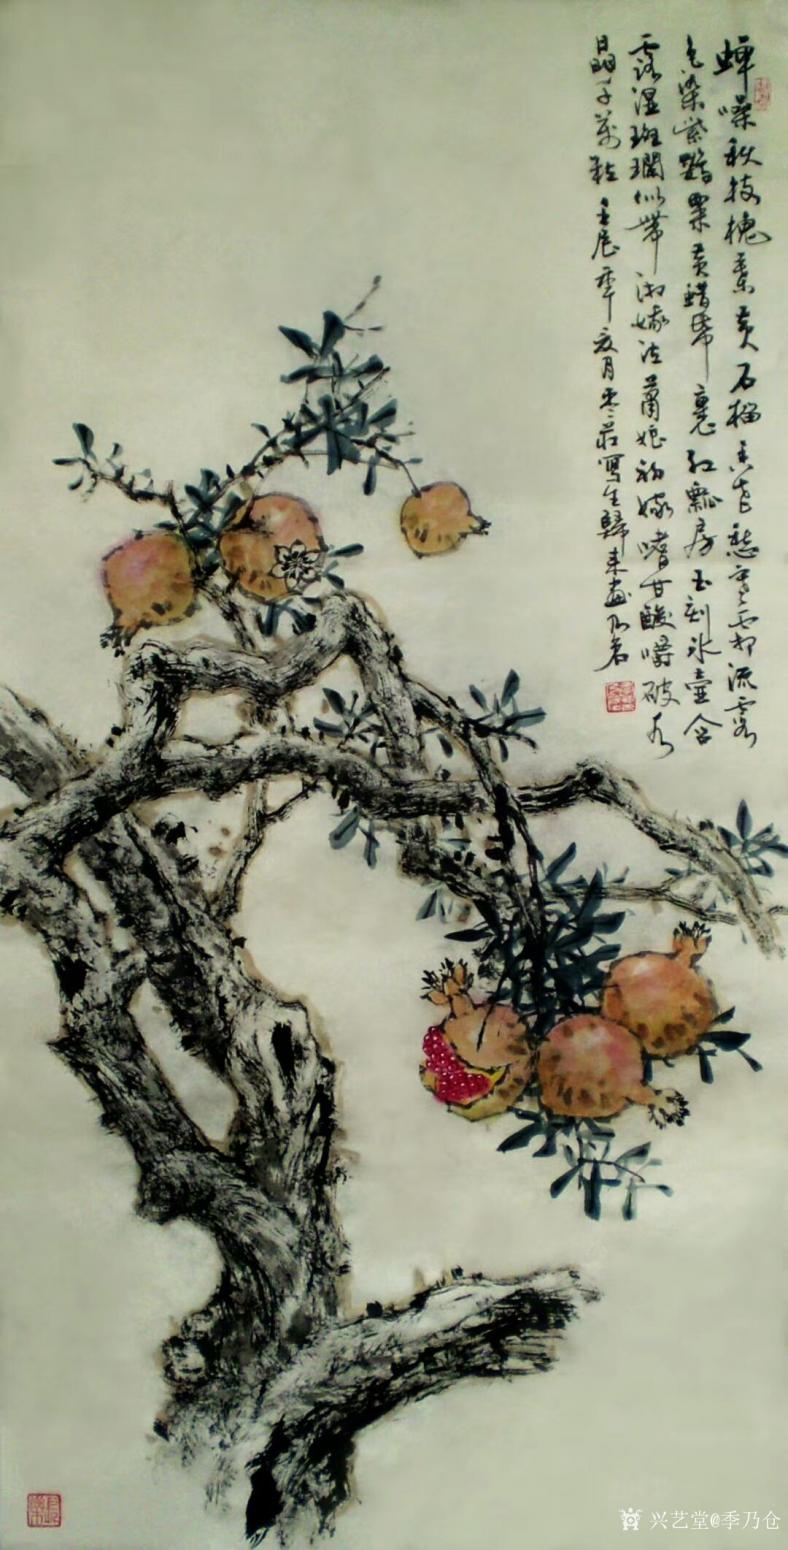 蟬噪秋枝槐葉黄石榴香老愁寒霜流霞
色染紫鶯粟黄蜡紙裹红瓤房玉刻冰壺含
露湿斑斓似带湘娥泣蕭娘初嫁嗜甘酸嚼破水
晶千萬粒 壬辰年夏月枣莊寫生歸来画乃倉
兴艺堂@季乃仓